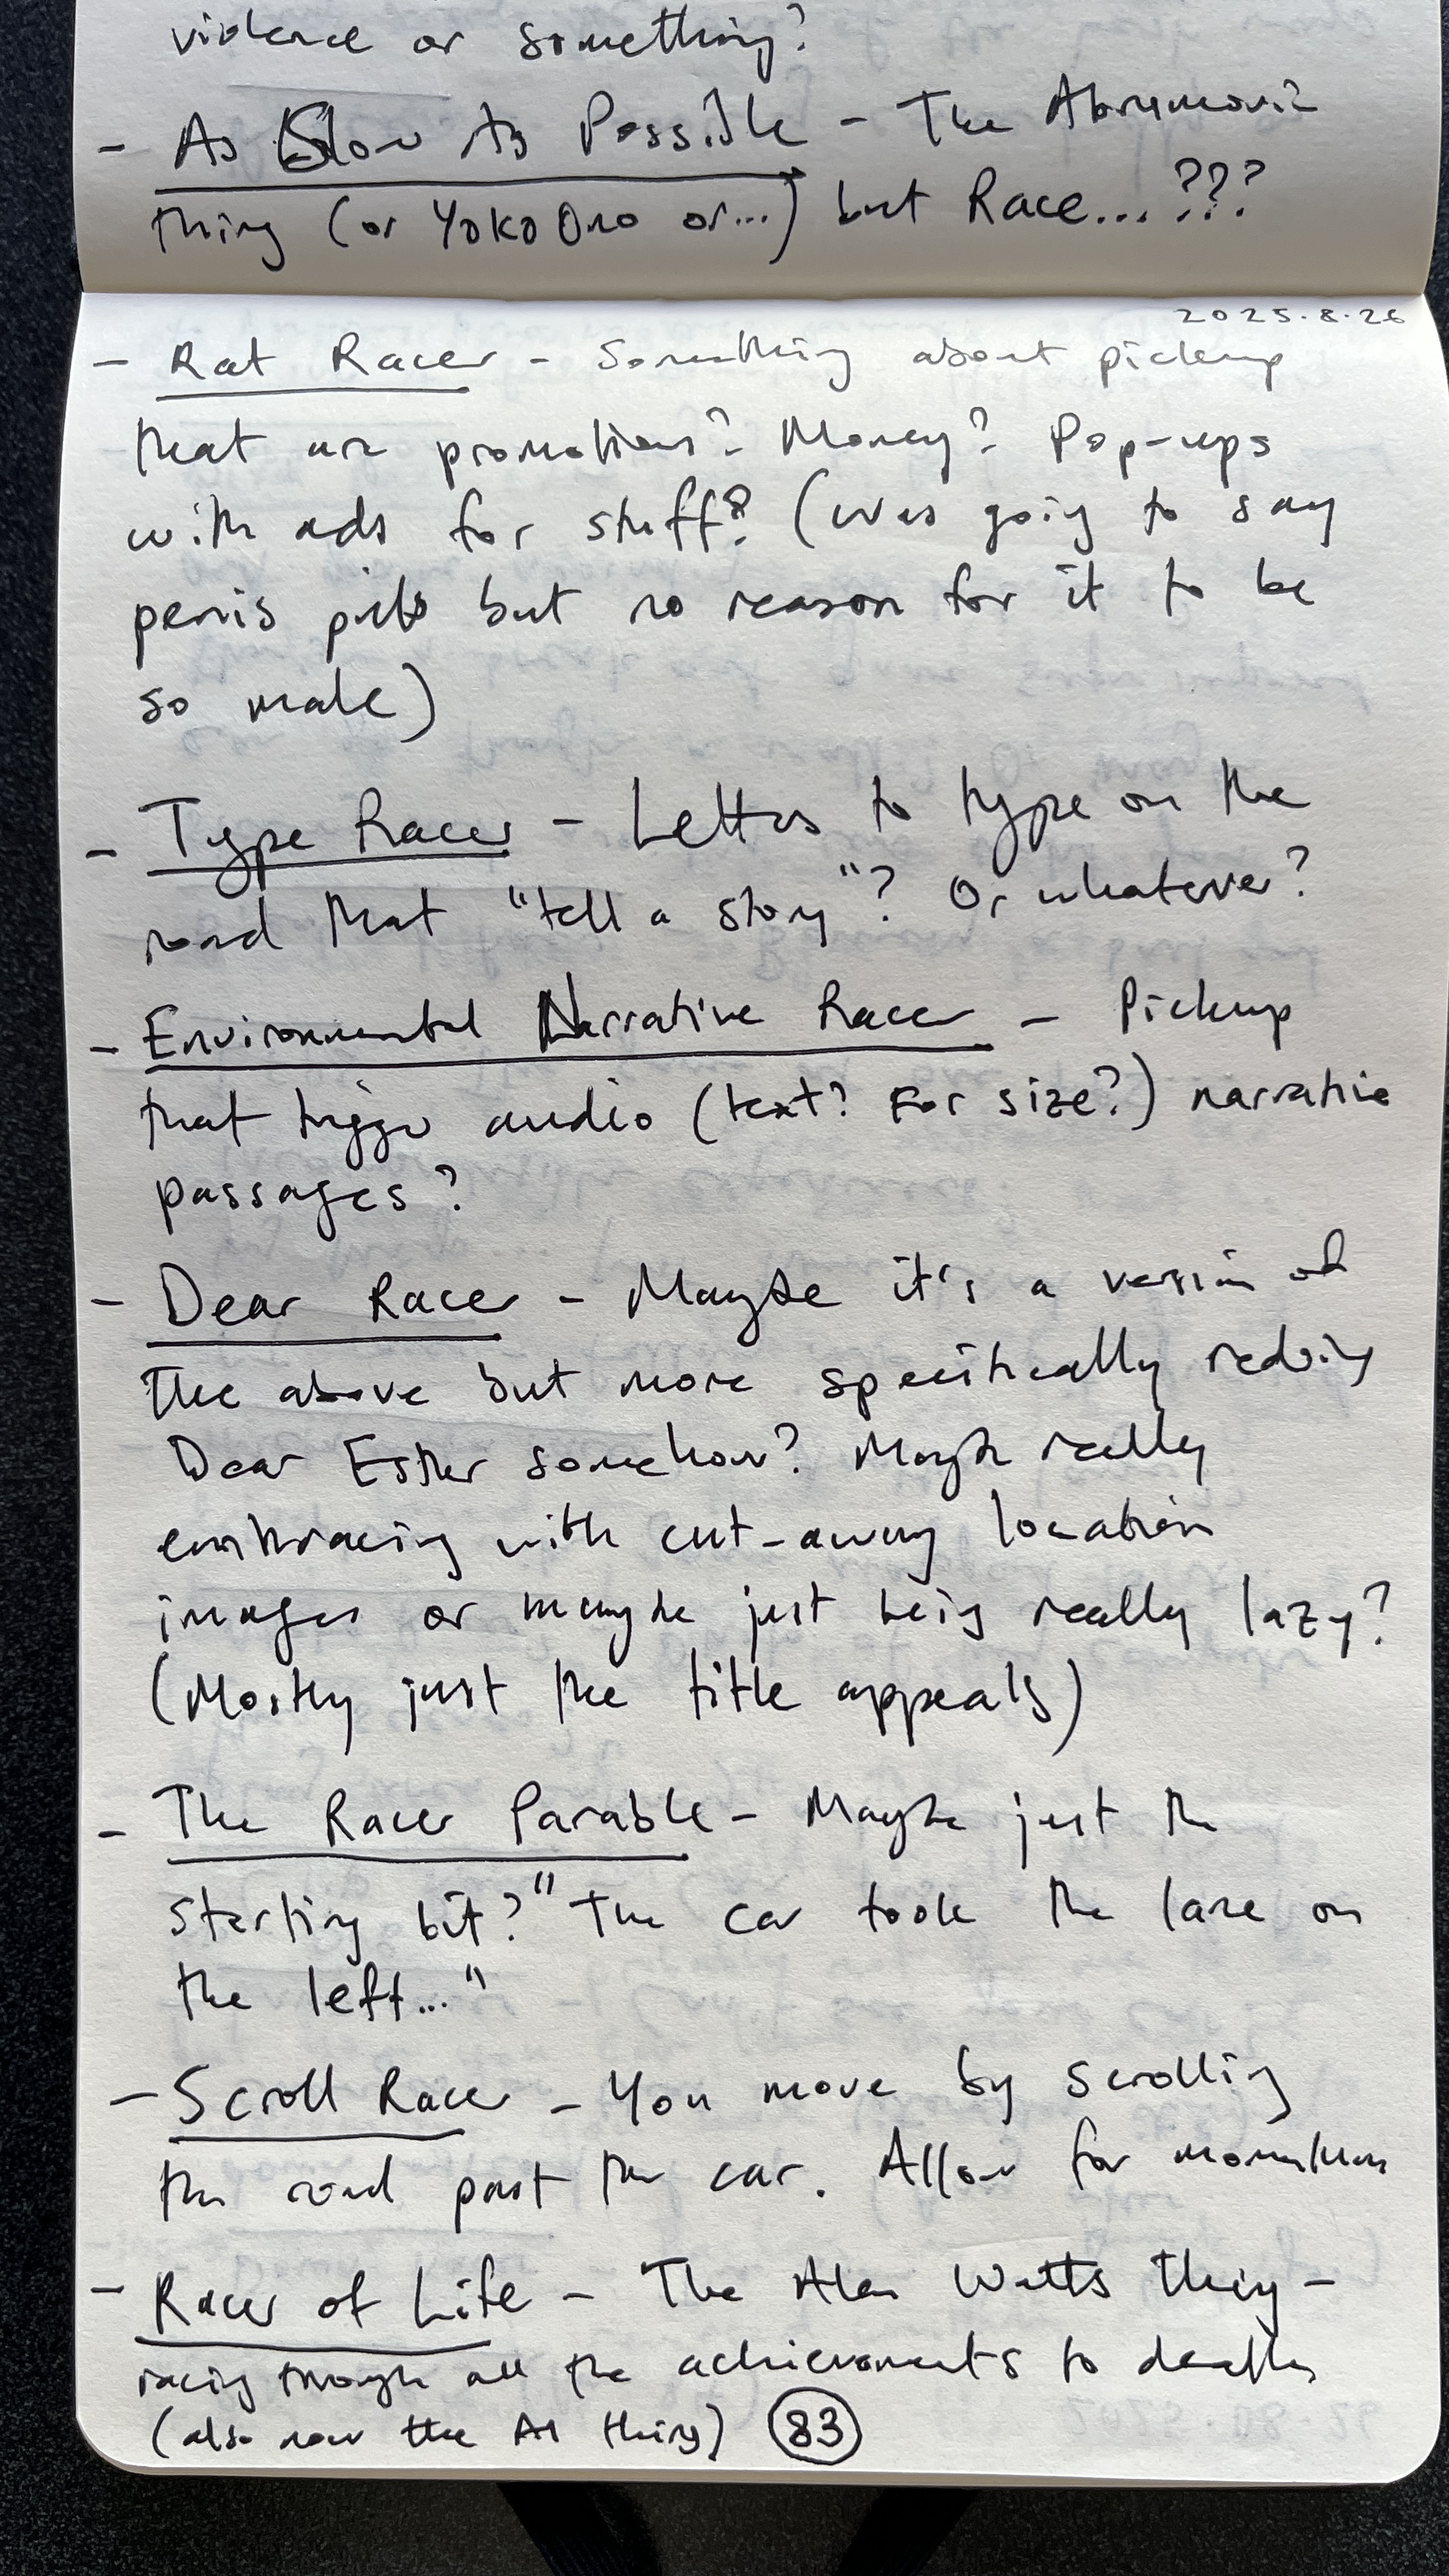 violence or something?
- As Slow As Possible - The Abramović
thing (or Yoko Ono or...) but Race...???
2025.8.26
- Rat Racer - Something about pickup
that are promotions? Money? Pop-ups
with ads for stuff? (was going to say
penis pills but no reason for it to be
so male)
- Type Racer - Letters to type on the
road that "tell a story"? Or whatever?
- Environmental Narrative Racer - Pickup
that trigger audio (text? For size?) narrative
passages?
- Dear Racer - Maybe it's a version of
the above but more specifically redoing
Dear Esther somehow? Maybe really
embracing with cut-away location
images or maybe just being really lazy?
(Mostly just the title appeals)
- The Racer Parable - Maybe just the
starting bit? "The car took the lane on
the left..."
- Scroll Racer - You move by scrolling
the road past the car. Allow for momentum
- Racer of Life - The Alan Watts thing -
racing through all the achievements to death
(also now the AI thing) 83